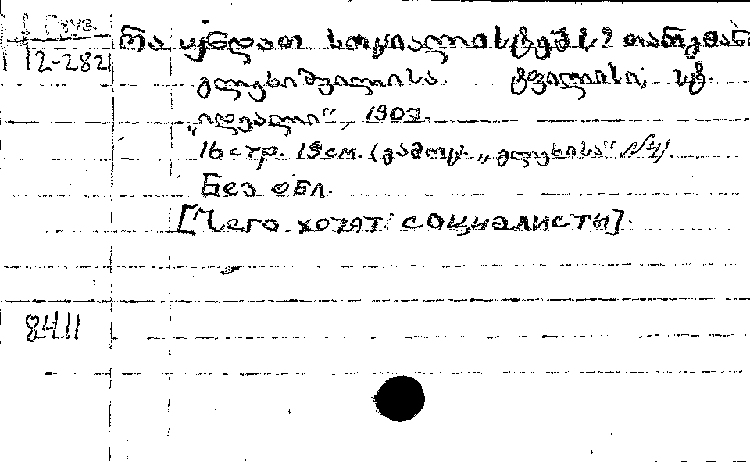 Груз.
12-282
რა უნდათ სოციალისტებს? თარგმანი
გლეხიშვილისა. ტფილისი, სტ.
„იდეალი“, 1907.
16 стр. 19 см. (გამოც. „გლეხისა“ №4).
Без обл.
[Чего хотят социалисты].
8411